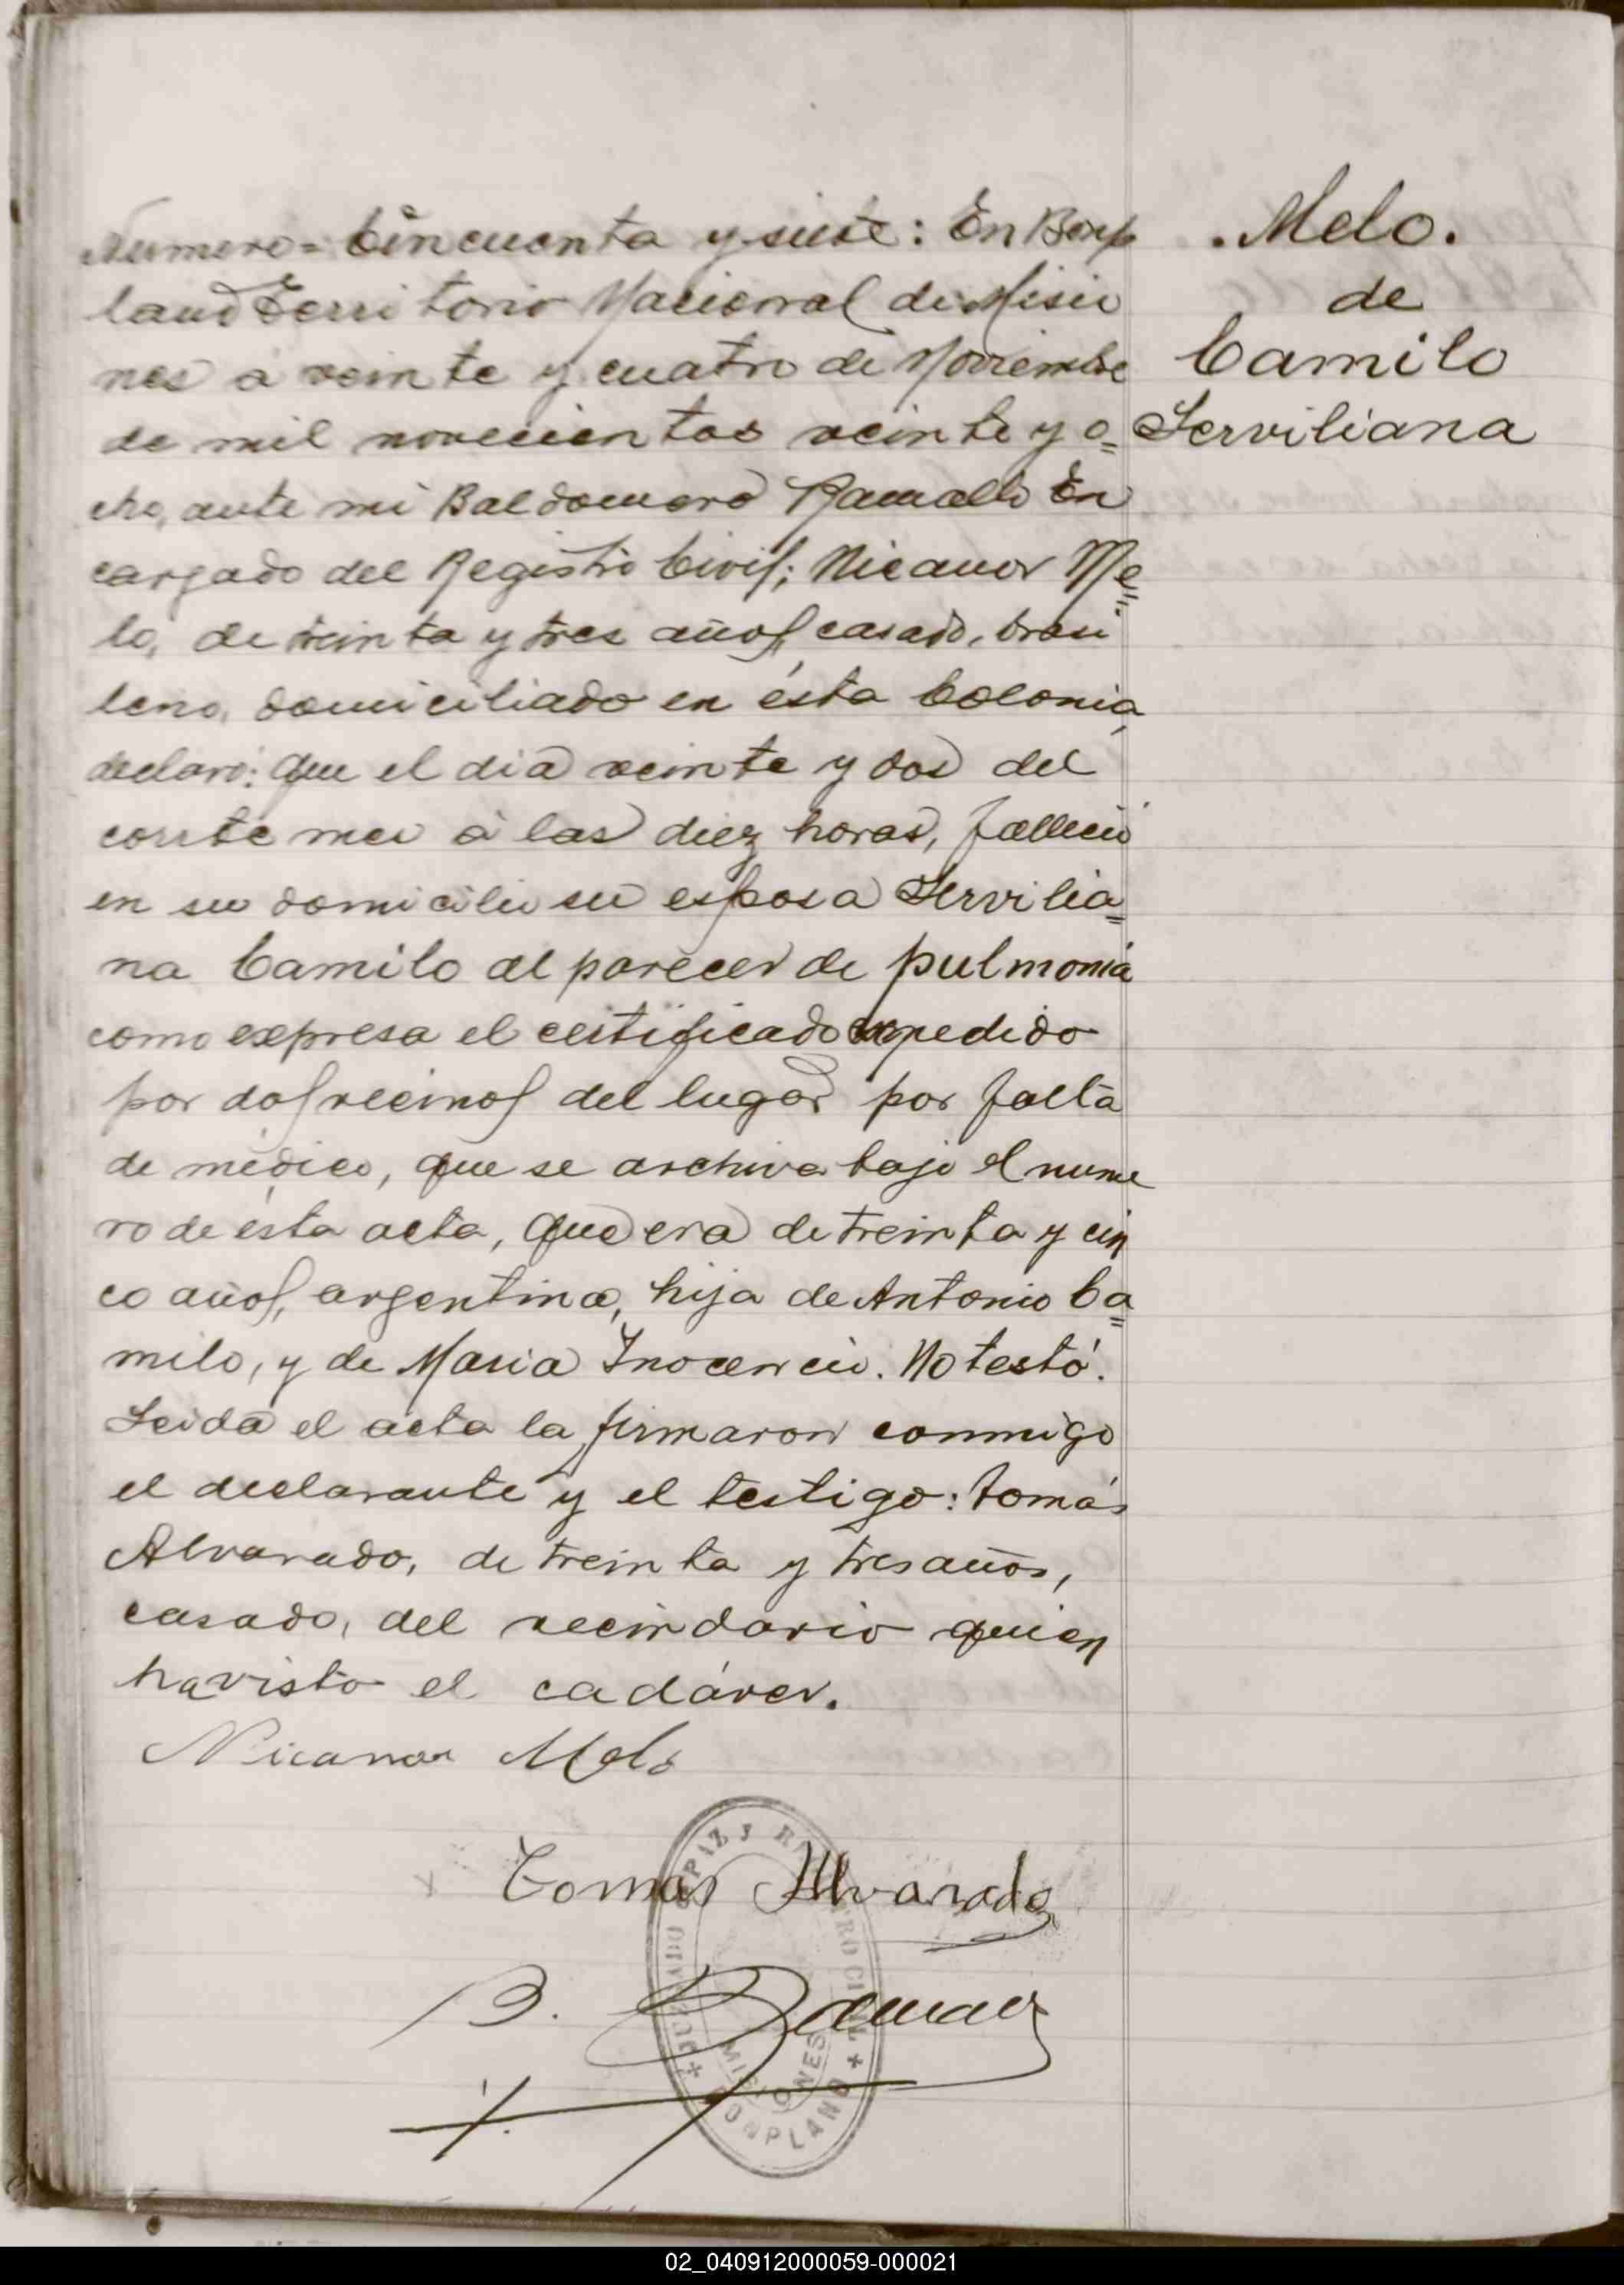 Numero= Cincuenta y siete: En Bonp
land Territorio Nacional de Misio
nes a veinte y cuatro de Noviembre
de mil novecientos veinte y o=
cho, ante mi Baldomero Ramallo En
cargado del Registro Civil; Nicanor Me=
lo, de treinta y tres años, casado, brasi
leno, domiciliado en ésta Colonia,
declaró: Que el dia veinte y dos del
corrte mes á las diez horas, falleció
en su domicilio su esposa Servilia=
na Camilo al parecer de pulmonia
como expresa el certificado expedido
por dos vecinos del lugar por falta
de médico, que se archiva bajo el nume
ro de ésta acta, Que era de treinta y cin
co años, argentina, hija de Antonio Ca=
milo, y de Maria Inocencio. No testó.
Leida el acta la firmaron conmigo
el declarante y el testigo: Tomás
Alvarado, de treinta y tres años,
casado, del vecindario quien
ha visto el cadáver.
Nicanor Melo
Tomas Alvarado
B. Ramallo
JUZGADO DE PAZ Y REGISTRO CIVIL
MISIONES
BONPLAND
.Melo.
de
Camilo
Serviliana
02_040912000059-000021